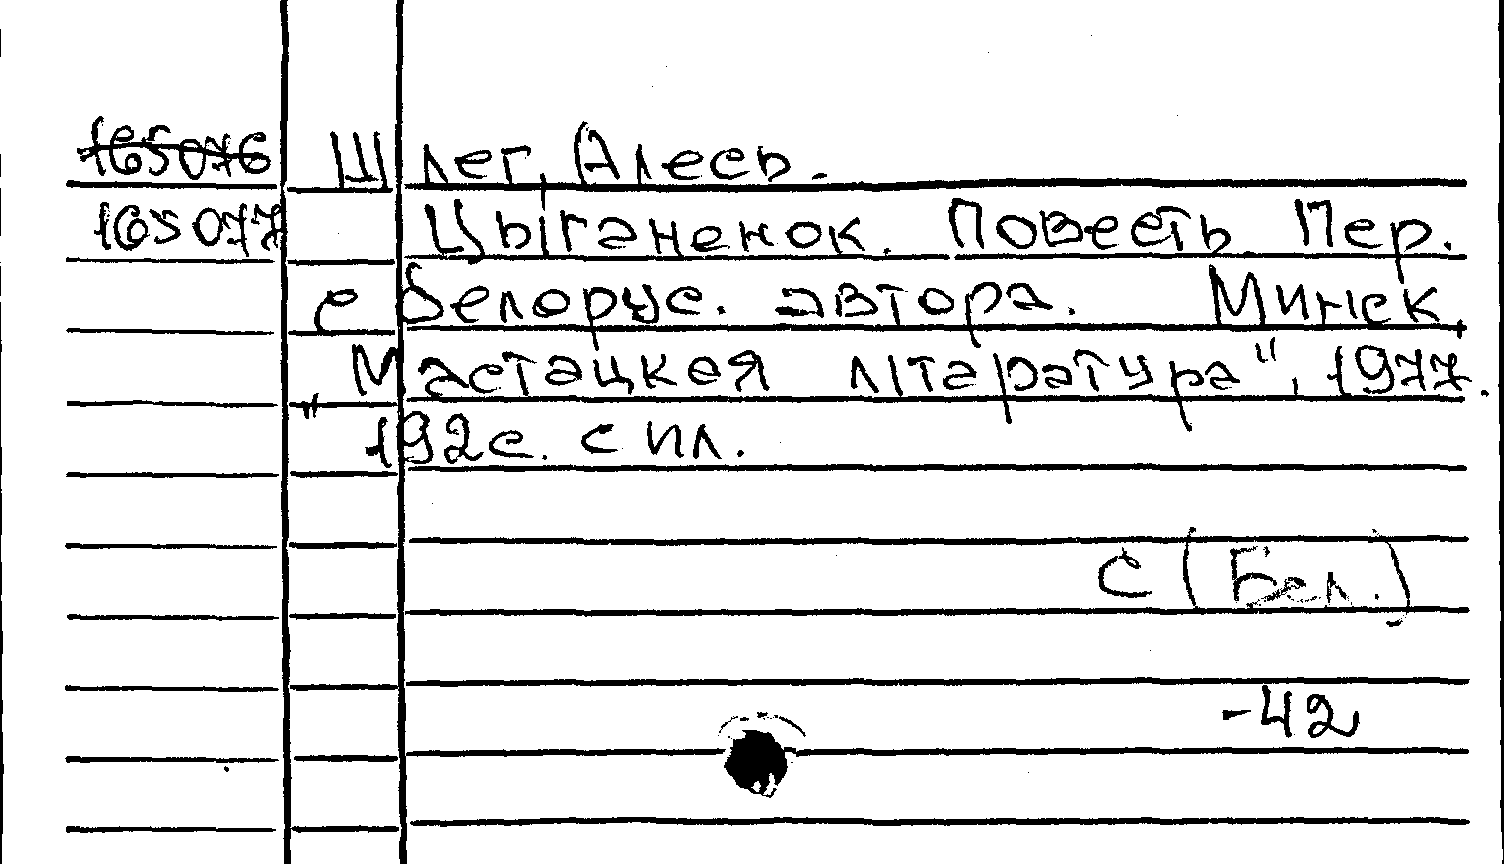 165076 Шлег, Алесь.
165077 Цыганенок. Повесть Пер.
с белорус. автора. Минск,
"Мастацкая літаратура", 1977.
192с. с ил.
С (Бел.)
-42